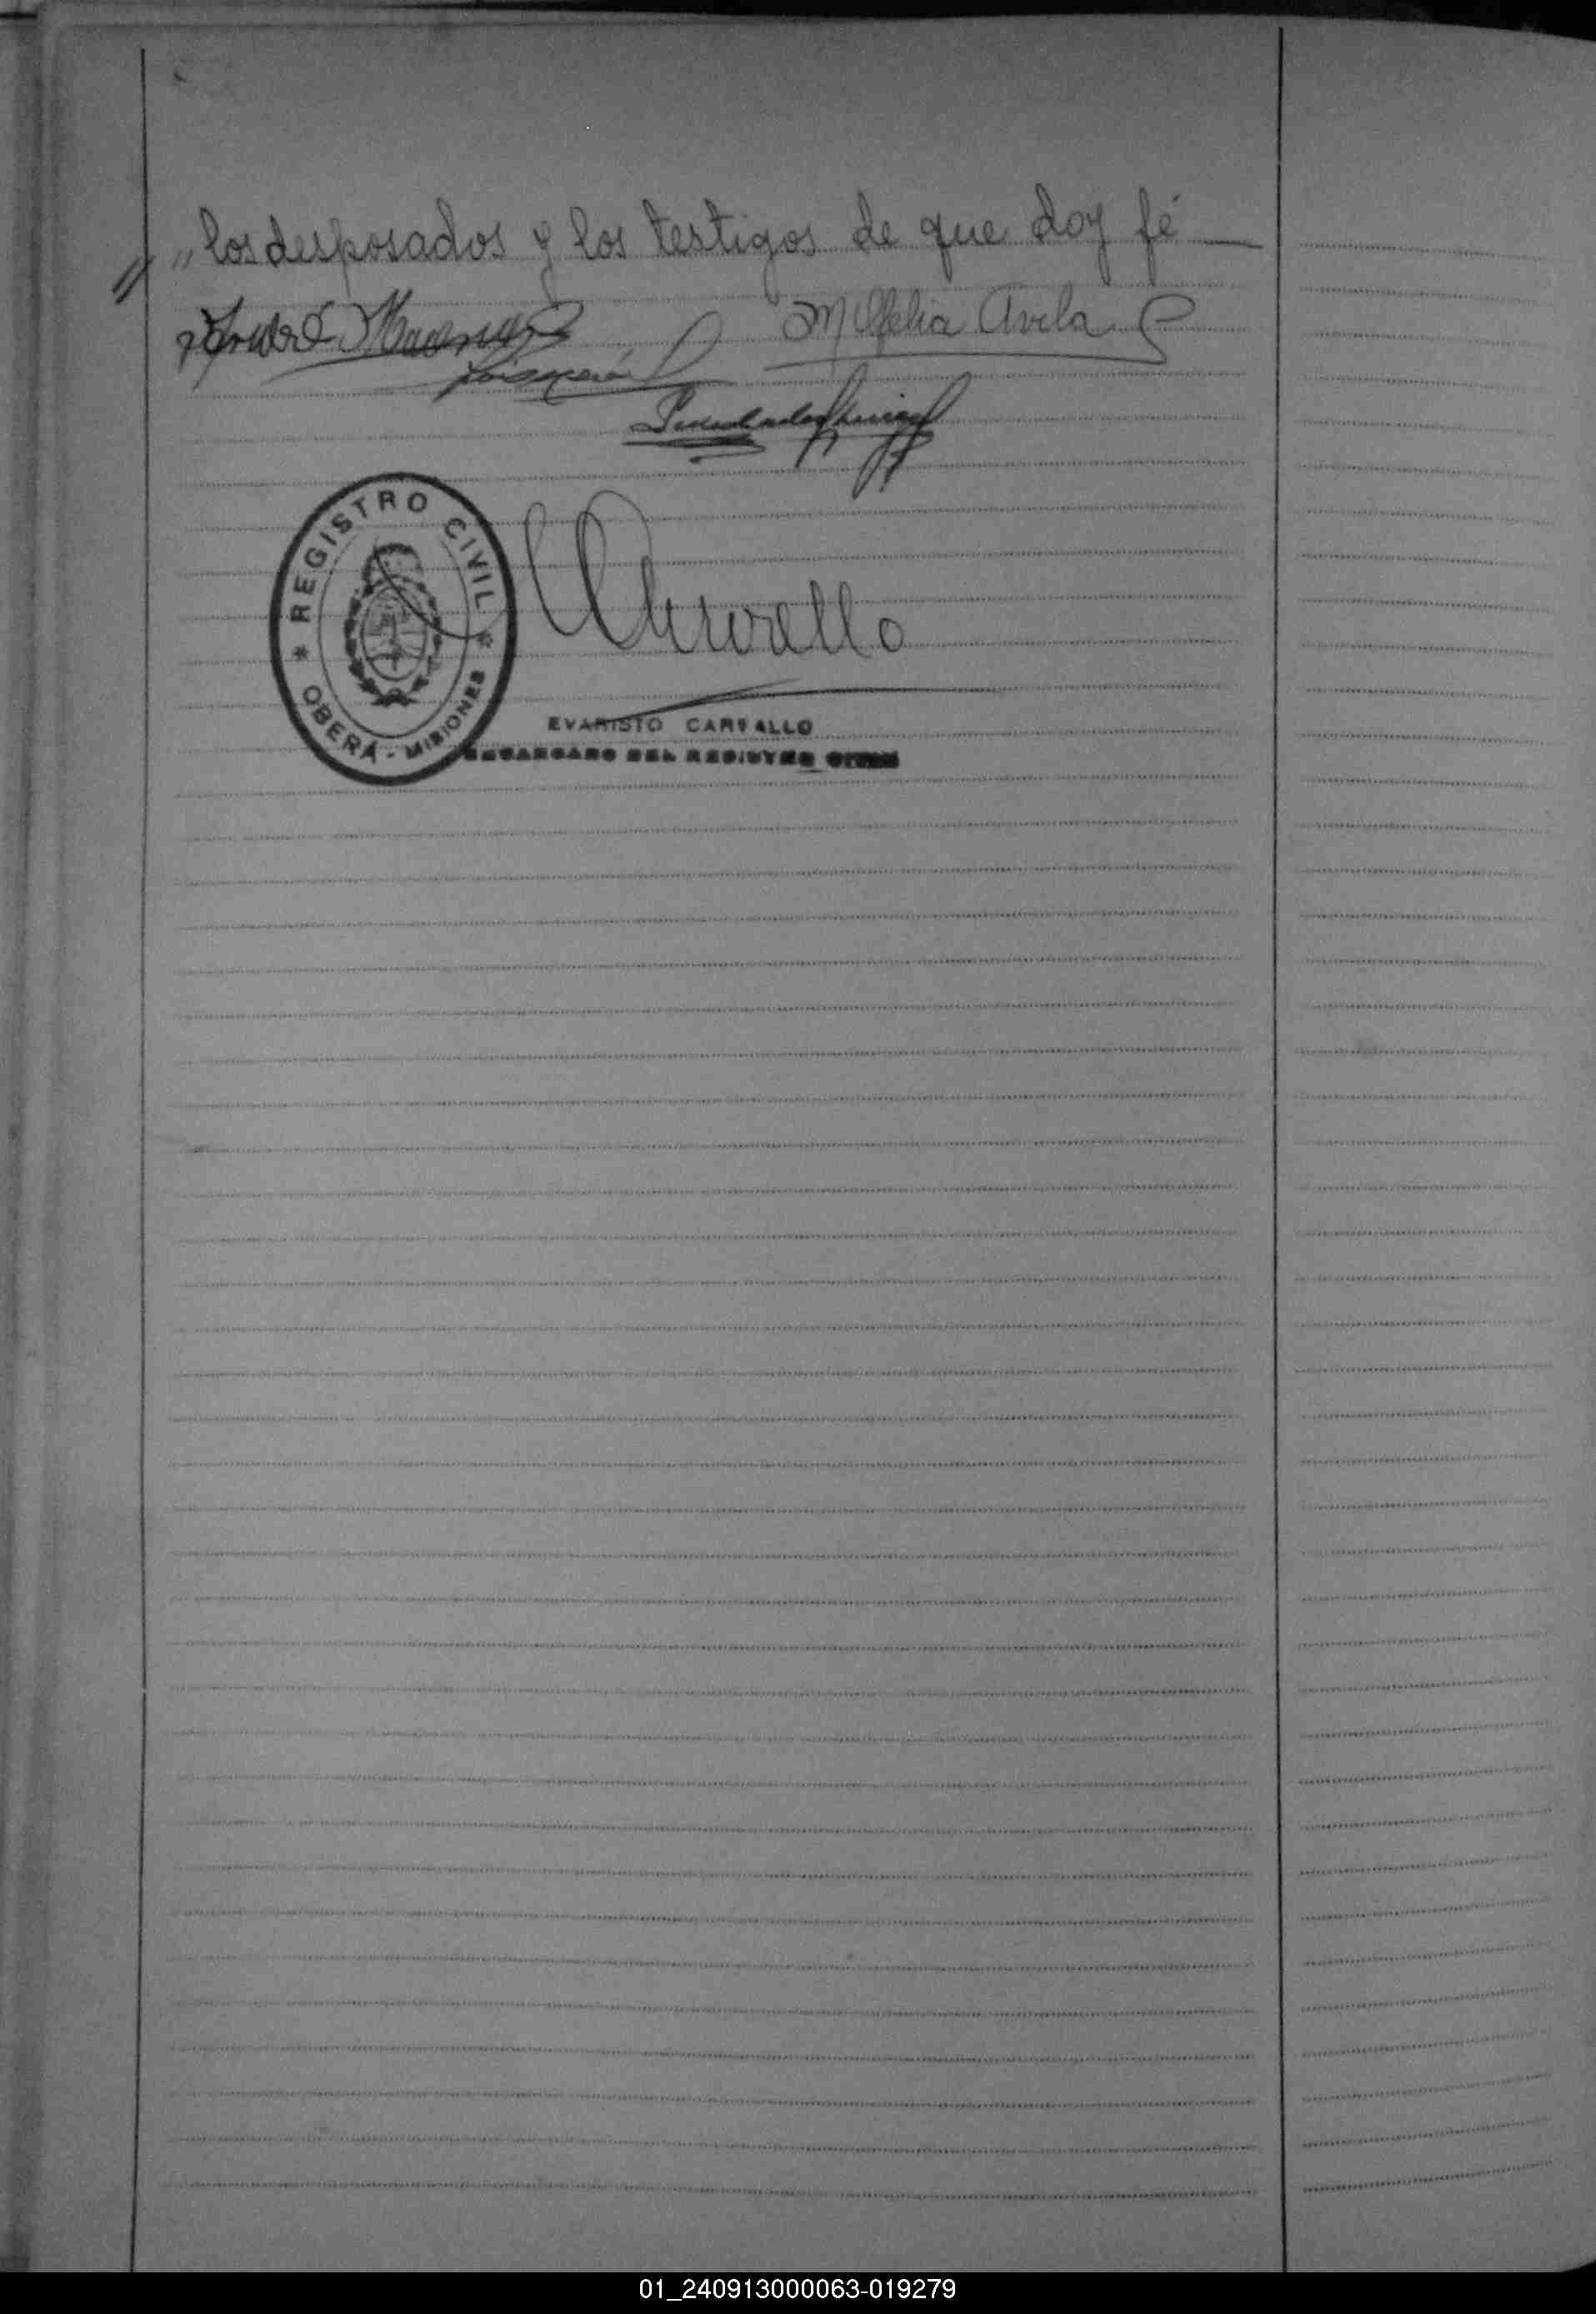 // „ los desposados y los testigos de que doy fé —
M Ofelia Avila
REGISTRO CIVIL
* OBERÁ - MISIONES *
Carvallo
EVARISTO CARVALLO
ENCARGADO DEL REGISTRO CIVIL
01_240913000063-019279